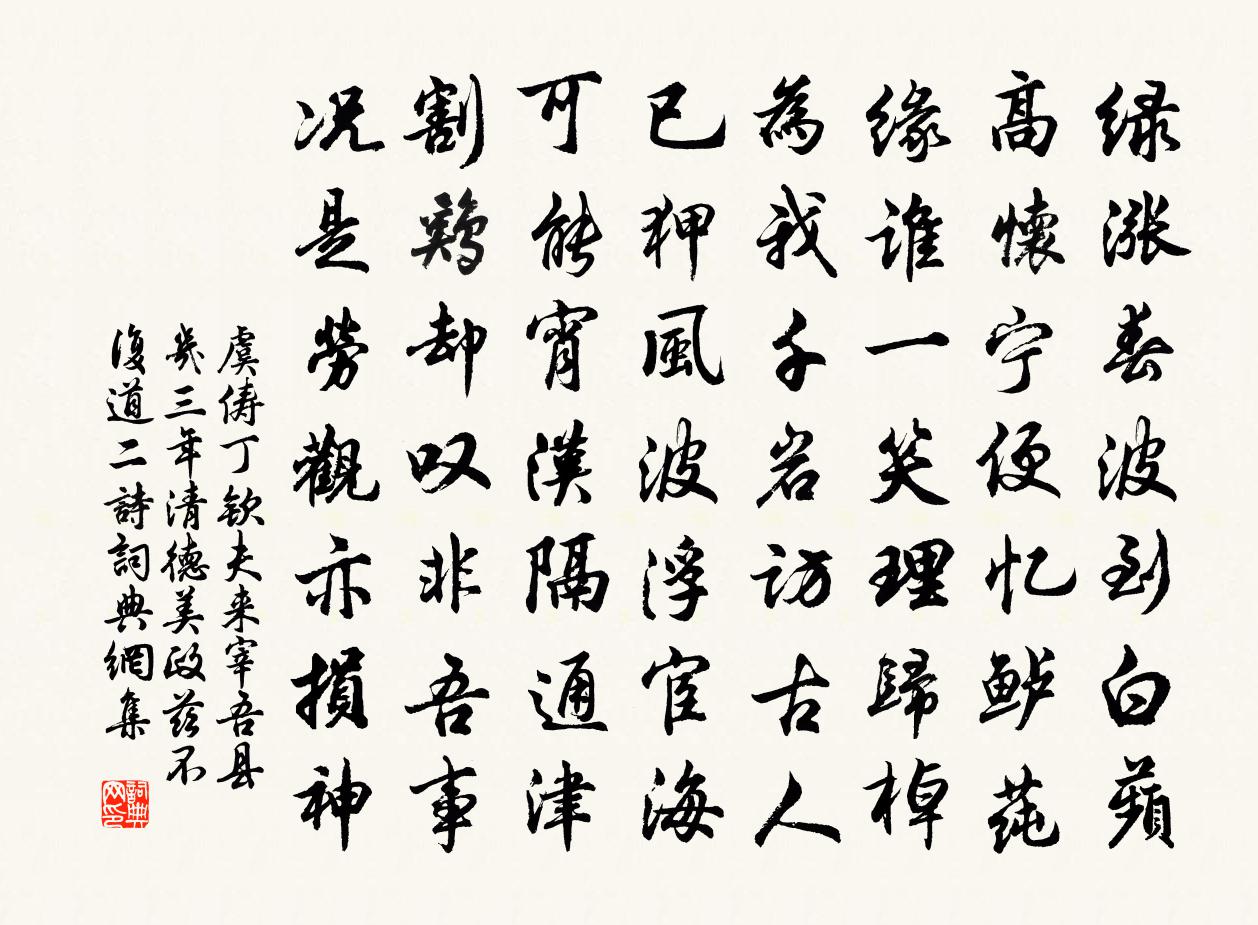 緑漲春波到白蘋
高懷宁便忆鲈莼
緣谁一笑理歸棹
為我千岩訪古人
已狎風波浮宦海
可能霄漢隔通津
割鷄却叹非吾事
况是勞觀亦損神
虞俦丁欽夫来宰吾县
幾三年清德美政茲不
復道二詩詞典網集
詞典网印